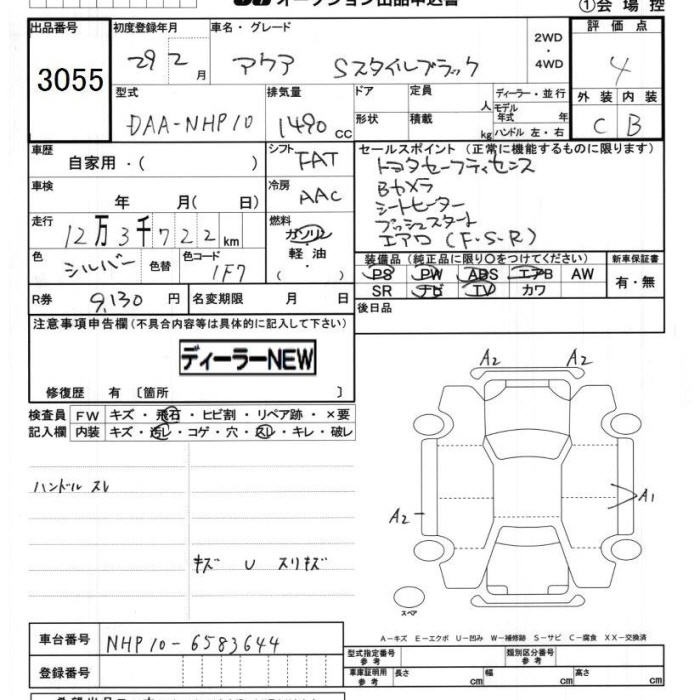 オークション出品申込書
①会場控
出品番号 3055
初度登録年月 29 2 月
車名・グレード アクア Sスタイルブラック
2WD・4WD
評価点 4
外装 C 内装 B
型式 DAA-NHP10
排気量 1490 cc
ドア 形状
定員 人
積載 kg
ディーラー・並行
モデル年式 年
ハンドル 左・右
車歴 自家用・( )
シフト FAT
セールスポイント (正常に機能するものに限ります)
トヨタセーフティセンス
Bカメラ
シートヒーター
プッシュスタート
エアロ(F・S・R)
車検 年 月( 日)
冷房 AAC
走行 12万3千722km
燃料 ガソリン・軽油・
色 シルバー 色替
色コード 1F7
装備品(純正品に限り○をつけてください)
PS PW ABS エアB AW
SR ナビ TV カワ
新車保証書 有・無
R券 9,130 円
名変期限 月 日
後日品
注意事項申告欄(不具合内容等は具体的に記入して下さい)
ディーラーNEW
修復歴 有 〔箇所 〕
検査員記入欄
FW キズ・飛石・ヒビ割・リペア跡・×要
内装 キズ・汚レ・コゲ・穴・スレ・キレ・破レ
ハンドル スレ
キズ U スリキズ
A2 A2
A2
A1
スペア
A-キズ E-エクボ U-凹み W-補修跡 S-サビ C-腐食 XX-交換済
車台番号 NHP10-6583644
登録番号
型式指定番号 参考
類別区分番号 参考
車庫証明用 参考 長さ cm 幅 cm 高さ cm